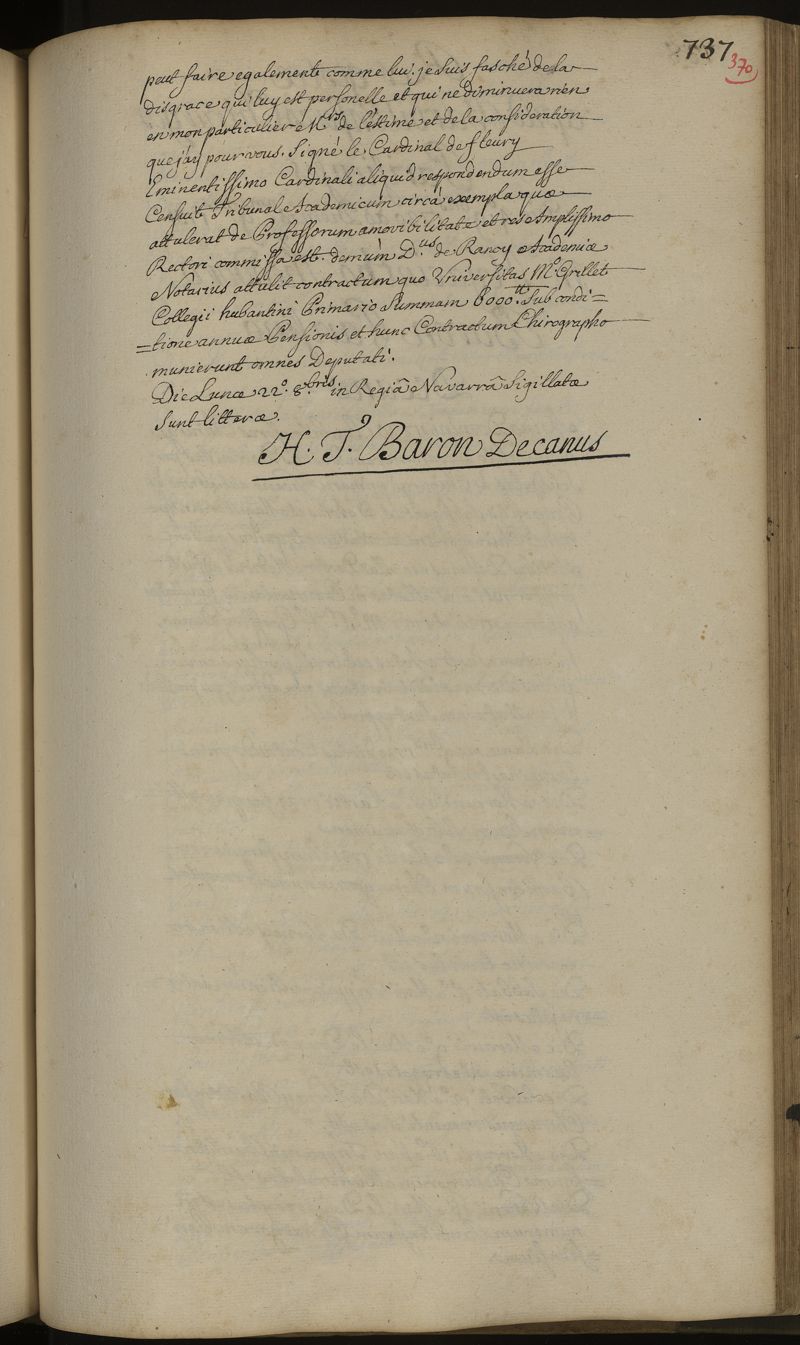 737
370
peut faire egalement comme lui. je suis fasché de la
disgrace qui luy est personelle et qui ne diminuera rien
en mon particulier de l'estime et de la consideration
que j'ay pour vous. Signé le Cardinal de fleury
Eminentissimo Cardinali aliquid respondendum esse
Censuit Tribunal Academicum circà exempla quæ
attulerat de Professorum amovibilitate et res Amplissimo
Rectori commissa est. demùm D.us de Rancy Academiæ
Notarius attulit contractum quo Universitas M.o Grillet
Collegii hubantini Primario Summam 6000.tt Sub condi=
=tione annuæ Pensionis et hunc Contractum Chirographo
munierunt omnes Deputati.
Die Lunæ 22.o 8.bris in Regiâ Navarrâ Sigillatæ
Sunt litteræ.
H. T. Baron Decanus